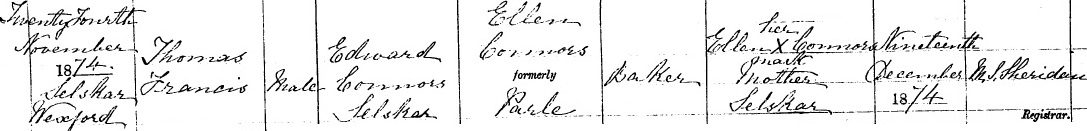 Twenty Fourth
November
1874
Selskar
Wexford
Thomas
Francis
Male
Edward
Connors
Selskar
Ellen
Connors
formerly
Parle
Baker
her
Ellen X Connors
mark
Mother
Selskar
Nineteenth
December
1874
M.J. Sheridan
Registrar.